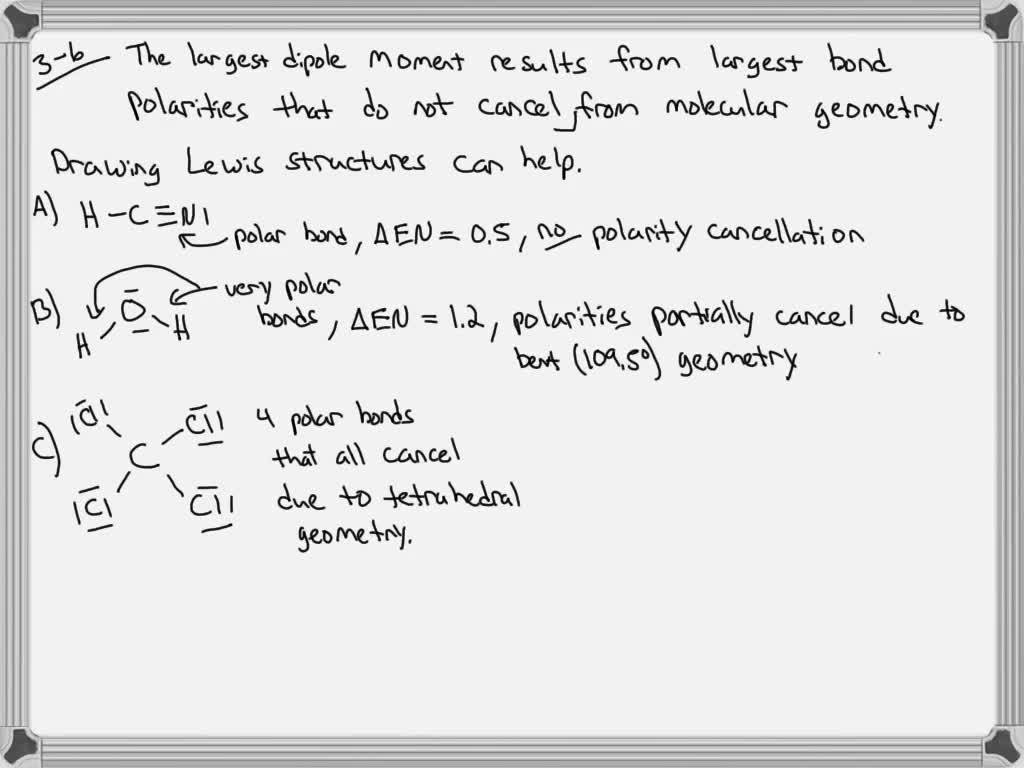 3-6 The largest dipole moment results from largest bond
polarities that do not cancel from molecular geometry.
Drawing Lewis structures can help.
A) H-C≡N|
polar bond, ΔEN = 0.5, no polarity cancellation
B) O H H
very polar
bonds, ΔEN = 1.2, polarities partially cancel due to
bent (109.5°) geometry
C) |Cl| Cl| C |Cl| Cl|
4 polar bonds
that all cancel
due to tetrahedral
geometry.